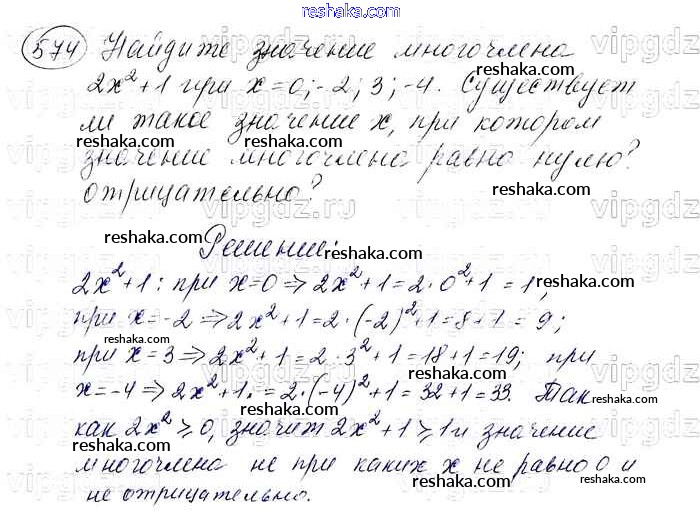 reshaka.com
574 Найдите значение многочлена
2x²+1 при x=0; -2; 3; -4. Существует
ли такое значение x, при котором
значение многочлена равно нулю?
отрицательно?
Решение:
2x²+1: при x=0 ⇒ 2x²+1=2·0²+1=1;
при x=-2 ⇒ 2x²+1=2·(-2)²+1=8+1=9;
при x=3 ⇒ 2x²+1=2·3²+1=18+1=19; при
x=-4 ⇒ 2x²+1=2·(-4)²+1=32+1=33. Так
как 2x²≥0, значит 2x²+1≥1 и значение
многочлена не при каких x не равно 0 и
не отрицательно.
reshaka.com
vipgdz.ru